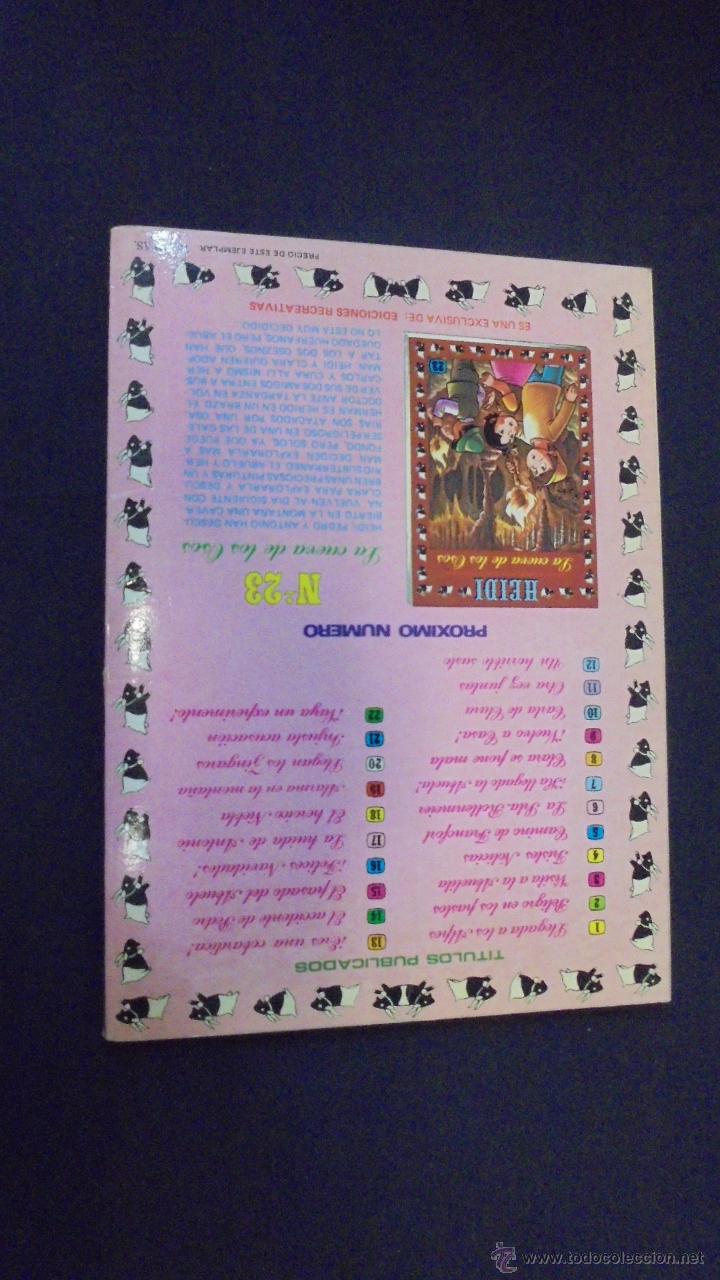 TITULOS PUBLICADOS
1 Llegada a los Alpes
2 Peligro en los pastos
3 Visita a la Abuelita
4 Tristes Noticias
5 Camino de Francfort
6 La Srta. Rottenmeier
7 ¡Ha llegado la Abuela!
8 Clara se pone mala
9 ¡Vuelvo a Casa!
10 Carta de Clara
11 Otra vez juntas
12 Un horrible susto
13 ¡Eres una cobardica!
14 El accidente de Pedro
15 El pasado del Abuelo
16 ¡Felices Navidades!
17 La huida de Antonio
18 El heroico Niebla
19 Alarma en la montaña
20 Llegan los Zingaros
21 Injusta acusación
22 ¡Vaya un experimento!
PROXIMO NUMERO
HEIDI
La cueva de los Osos
23
N.º 23
La cueva de los Osos
HEIDI, PEDRO Y ANTONIO HAN DESCU-
BIERTO EN LA MONTAÑA UNA CAVER-
NA. VUELVEN AL DIA SIGUIENTE CON
CLARA PARA EXPLORARLA Y DESCU-
BREN UNAS PRECIOSAS PINTURAS Y UN
RIO SUBTERRANEO. EL ABUELO Y HER-
MAN DECIDEN EXPLORARLA MAS A
FONDO, PERO SOLOS, YA QUE PUEDE
SER PELIGROSO. EN UNA DE LAS GALE-
RIAS SON ATACADOS POR UNA OSA.
HERMAN ES HERIDO EN UN BRAZO. EL
DOCTOR ANTE LA TARDANZA EN VOL-
VER DE SUS DOS AMIGOS ENTRA A BUS-
CARLOS Y CURA ALLI MISMO A HER-
MAN. HEIDI Y CLARA QUIEREN ADOP-
TAR A LOS DOS OSEZNOS QUE HAN
QUEDADO HUERFANOS, PERO EL ABUE-
LO NO ESTA MUY DECIDIDO.
ES UNA EXCLUSIVA DE: EDICIONES RECREATIVAS
PRECIO DE ESTE EJEMPLAR:
www.todocoleccion.net